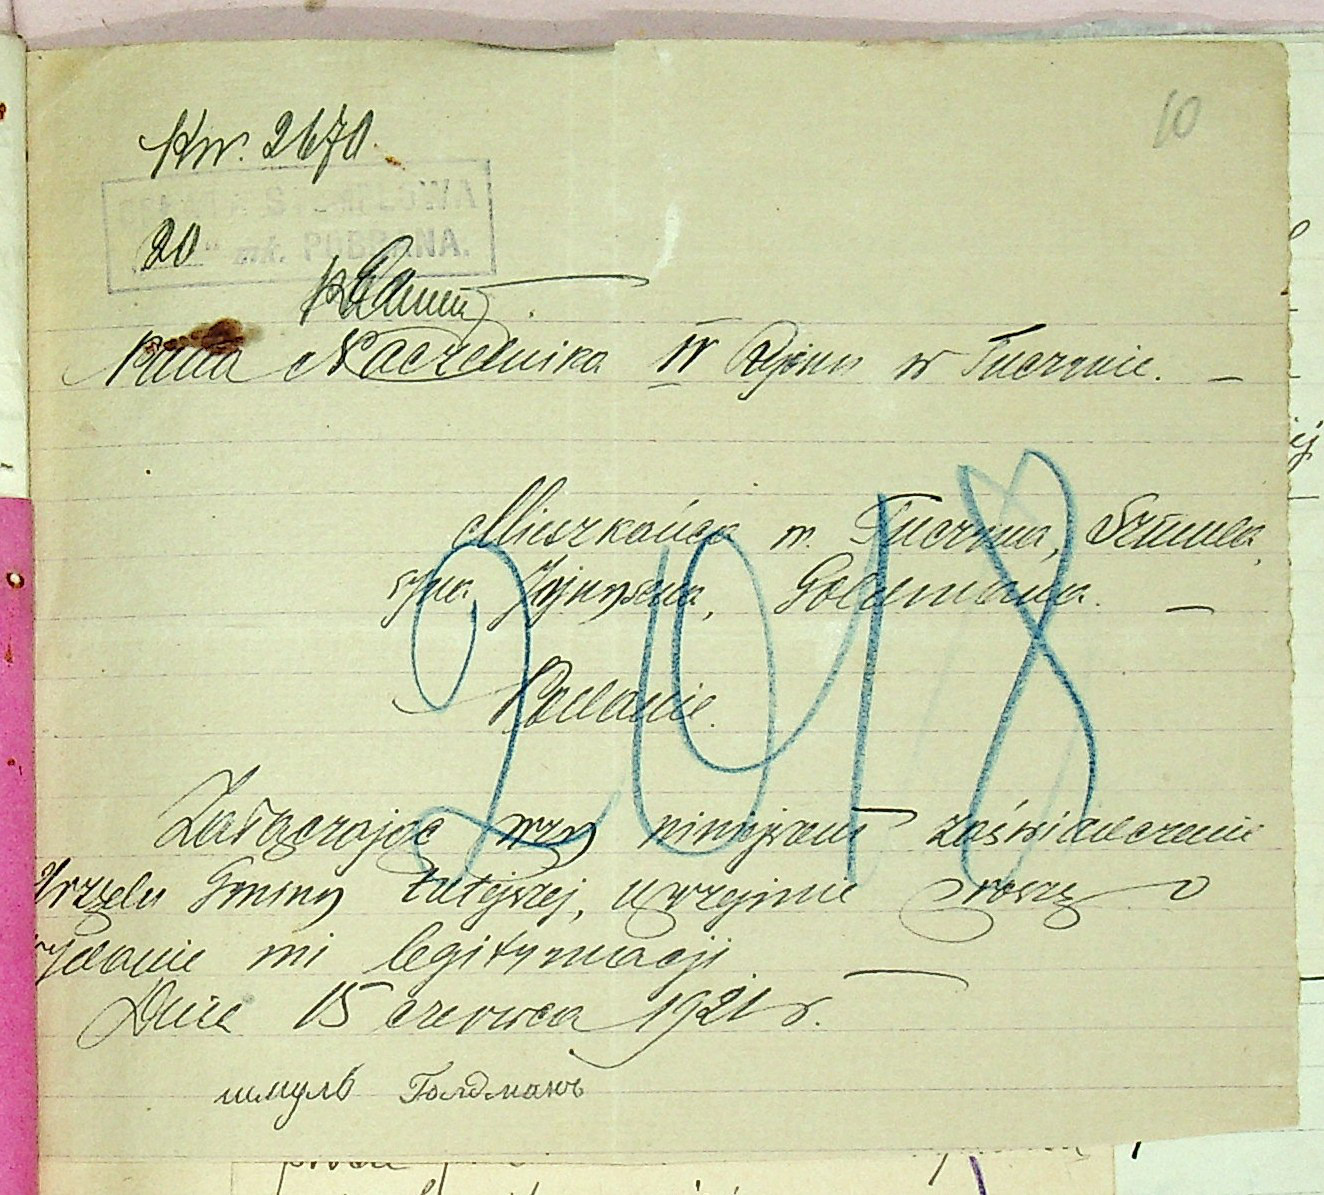 Kw. 2670.
10
OPŁATA STEMPLOWA
"20" mk. POBRANA.
Pana Naczelnika IV Rejonu w Tuczynie. —
Mieszkańca m. Tuczyna, Szmula,
syna , Goldmana. —
Podanie.
2018
Załączając przy niniejszem zaświadczenie
Urzędu Gminy tutejszej, uprzejmie proszę o
wydanie mi legitymacji. —
Dnia 15 czerwca 1921 r.
шмуль Голдманъ